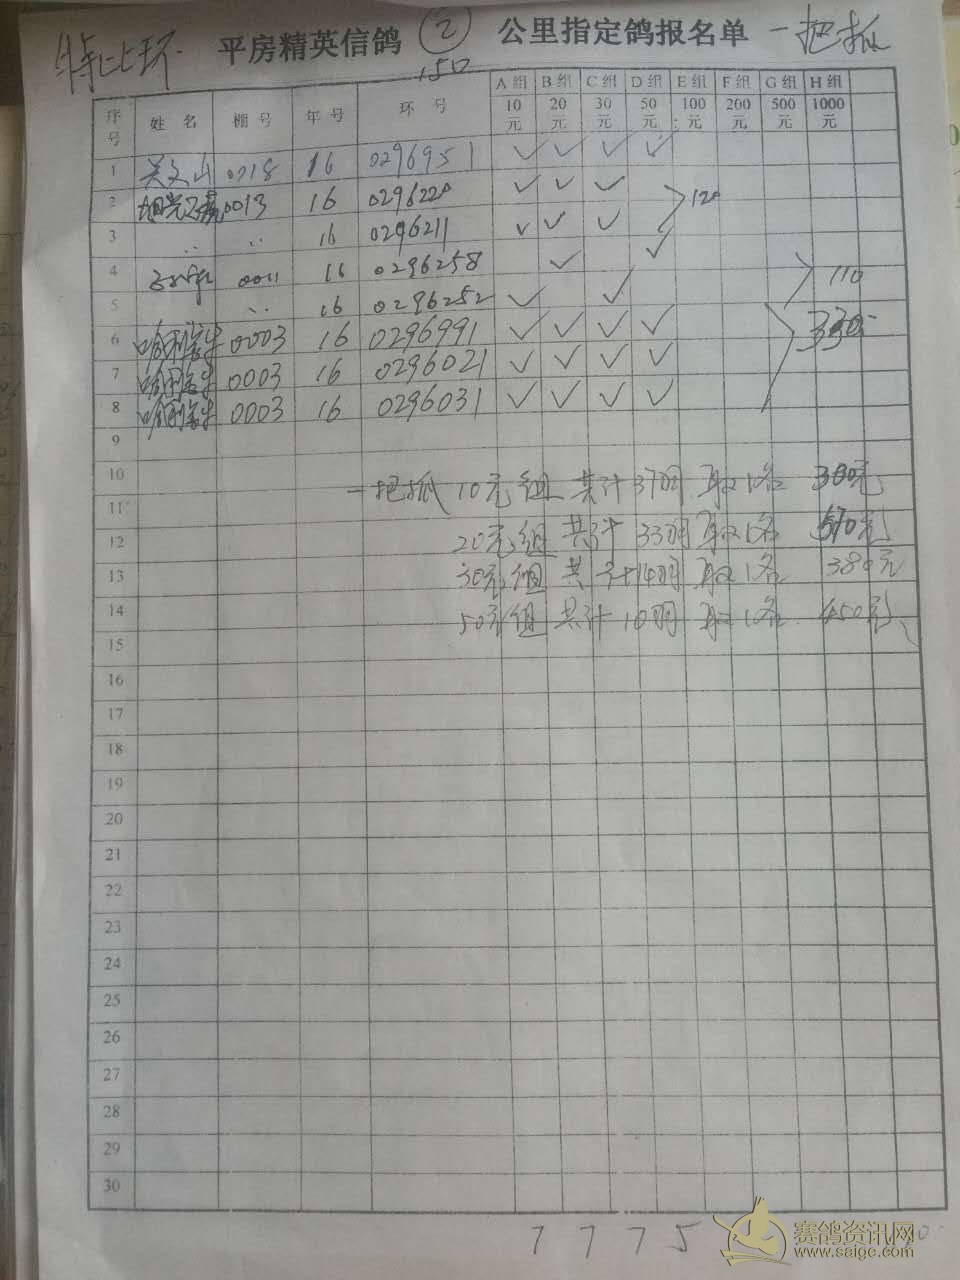 特比环 平房精英信鸽 ② 公里指定鸽报名单 一把抓
150
序号 姓名 棚号 年号 环号 A组 B组 C组 D组 E组 F组 G组 H组
10元 20元 30元 50元 100元 200元 500元 1000元
1 关文山 0018 16 0296951 ✓ ✓ ✓ ✓
2 0013 16 0296220 ✓ ✓ ✓ 120
3 〃 〃 16 0296211 ✓ ✓ ✓
4 0011 16 0296258 ✓ ✓ 110
5 〃 16 0296252 ✓ ✓
6 0003 16 0296991 ✓ ✓ ✓ ✓ 330
7 0003 16 0296021 ✓ ✓ ✓ ✓
8 0003 16 0296031 ✓ ✓ ✓ ✓
9
10
一把抓 10元组 共计37羽 取1名 元
11
12
20元组 共计33羽 取1名 元
13
30元组 共计14羽 取1名 380元
14
50元组 共计10羽 取1名 450元
15
16
17
18
19
20
21
22
23
24
25
26
27
28
29
30
7 7 7 5
赛鸽资讯网
www.saige.com